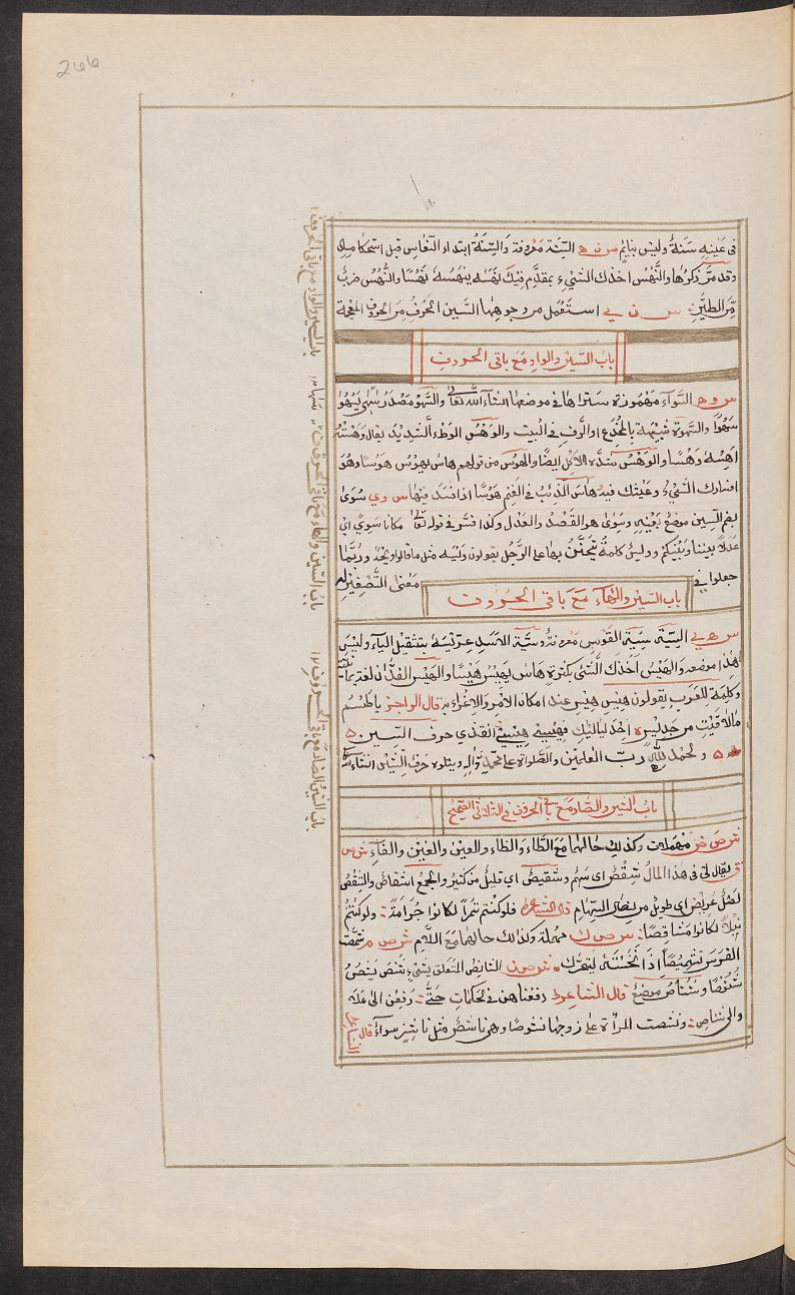 266
في عينه سنة وليس بنايم س ن ه السنة معروفة والسنة ابتداء النعاس قبل استحكامه
وقد مر ذكرها والنهس اخذك الشيء بمقدم فيك نهسه ينهسه نهسا والنهس ضرب
من الطير س ن ي استعمل من وجوهها السين الحرف من الحروف المعجمة
باب السين والواو مع باقي الحروف
س و ه السواء مهموزة ستراها في موضعها انشاء الله تعالى والسهو مصدر سهى يسهوا
سهوا والسهوة شبيهة بالمخدع او الرف في البيت والوهس الوطء الشديد يقال وهسته
اهسه وهسا والوهس شدة الاكل ايضا والهوس من قولهم هاس يهوس هوسا وهو
افسادك الشيء وعيثك فيه هاس الذئب في الغنم هوسا اذا افسد فيها س و ي سوى
بضم السين موضع بعينه وسوى هو القصد والعدل وكذا فسر في قوله تعالى مكانا سوى اي
عدلا بيننا وبينكم وويس كلمة على الرجل يقولون ويسه مثل ما قالوا ويحه وربما
جعلوا في معنى التصغير له
باب السين والهاء مع باقي الحروف
س ه ي السية سية القوس معروفة وسية الاسد عريسه بتثقيل الياء وليس
هذا موضعه والهيس اخذك الشئ بكثرة هاس يهيس هيسا والهيس الفدان لغة يمانية
وكلمة للعرب يقولون هيس هيس عند امكان الامر والاغراء به قال الراجز يا طسم
مالاقيت من جديس احدى لياليك فهيسي هيسي انقضى حرف السين
والحمد لله رب العلمين والصلواة على محمد واله ويتلوه حرف الشين انشاء الله
باب الشين والصاد مع باقي الحروف في الثلاثي الصحيح
ش ص ض مهملات وكذلك حالهما مع الطاء والظاء والعين والغين والفاء ش ص
ق يقال لي في هذا المال شقص اى سهم وشقيص اي قليل من كثير والجمع اشقاص والمشقص
نصل عريض اى طويل من نصال السهام قال الشاعر فلو كنتم تمرا لكانوا جرامة ولو كنتم
نبلا لكانوا مشاقصا ش ص ك مهملة وكذلك حالهما مع اللام ش ص م شمصت
الفرس تشميصا اذا نخسته ليتحرك ش ص ن الشانص المتعلق بشيء شنص يشنص
شنوصا وشناص موضع قال الشاعر دفعناهن في لحكات حتى دفعن الى علا
والى شناص ونشصت المرأة على زوجها نشوصا وهي ناشص مثل ناشز سواء قال
الشاعر
باب السين والواو مع باقي الحروف
باب السين والهاء مع باقي الحروف
باب الشين والصاد مع باقي الحروف